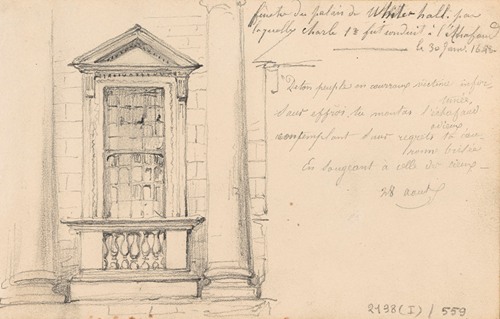 fenêtre du palais de White hall. par
laquelle Charle 1er fut conduit à l'échafaud
le 30 Janv. 1648
De ton peuple en courroux victime infor
tunée,
Sans effroi, tu montas l'échafaud
odieux,
contemplant sans regrets ta cou
ronne brisée
En songeant à celle de cieux
28 aout
2198 (I) / 559